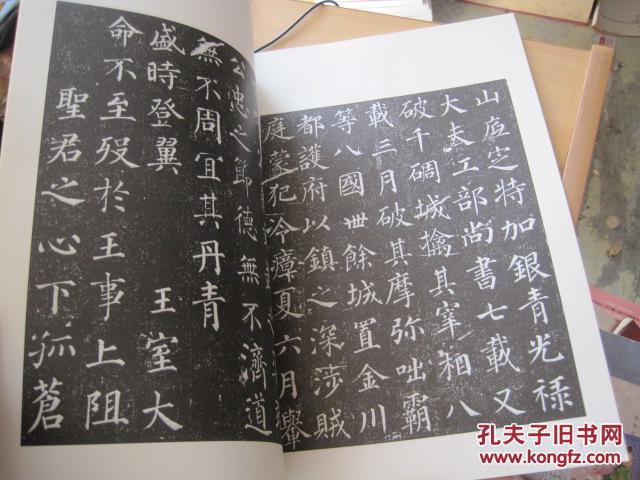 山底定特加銀青光禄
大夫工部尚書七載又
破千碉城擒其宰相八
載三月破其摩弥咄霸
等八國卌餘城置金川
都護府以鎮之深涉賊
庭蒙犯冷瘴夏六月轝
公忠之節德無不濟道
無不周宜其丹青
盛時登翼 王室大
命不至歿於王事上阻
聖君之心下孤蒼
孔夫子旧书网